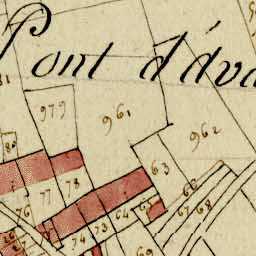 Pont d'ava
979
961
962
80
63
77
78
66
76
64
67
68
74
73
69